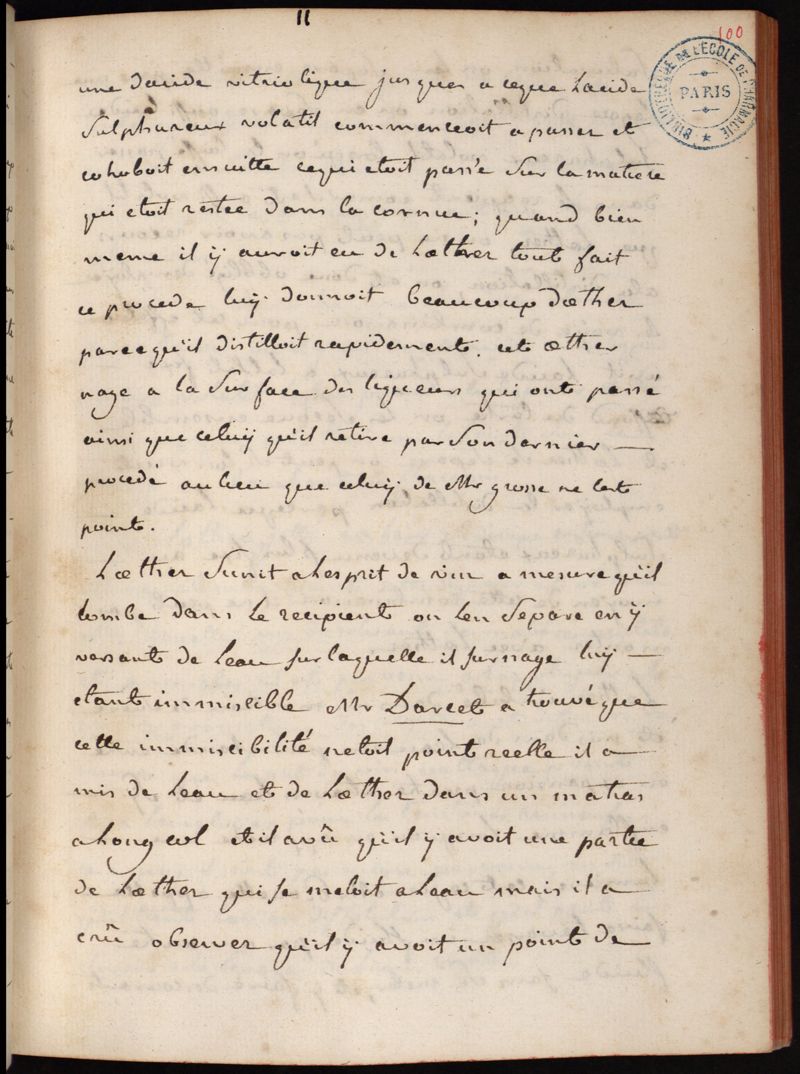 11
100
BIBLIOTHEQUE DE L'ECOLE DE PHARMACIE
PARIS
une dacide vitriolique jusques a ceque Lacide
Sulphureux volatil commencoit a passer et
cohoboit ensuitte cequi etoit passé Sur la matiere
qui etoit restée dans la cornue; quand bien
meme il ÿ auroit eu de Lœther tout fait
ce procede luÿ donnoit beaucoup dœther
parcequ'il distilloit rapidement. cet œther
nage a la Surface des liqueurs qui ont passé
ainsi que celuÿ qu'il retire par Son dernier —
procedé au lieu que celuÿ de Mr grosse ne lest
point.
Lœther Sunit a Lesprit de vin a mesure qu'il
tombe dans Le recipient on Len Separe en ÿ
versant de Leau sur laquelle il surnage luÿ —
etant immiscible Mr Darcet a trouvé que
cette immiscibilité netoit point reelle il a
mis de Leau et de Lœther dans un matras
a Long col et il a vû qu'il ÿ avoit une partie
de Lœther qui se meloit a Leau mais il a
crû observer qu'il ÿ avoit un point de